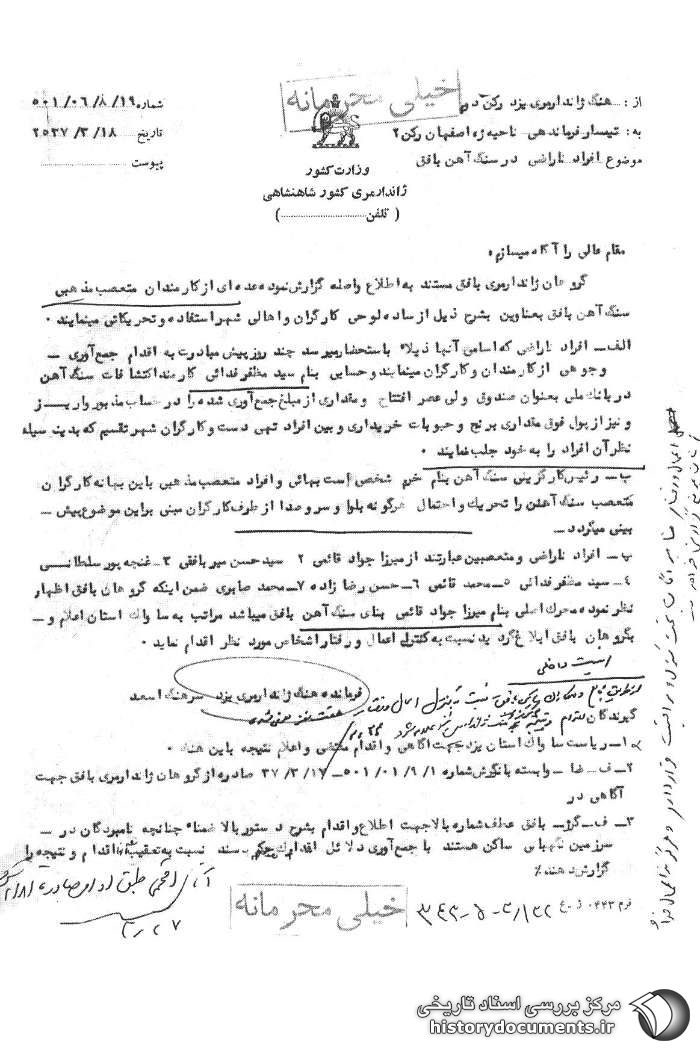 خیلی محرمانه
از : هنگ ژاندارمری یزد رکن دوم
به : تیمسار فرماندهی ناحیه ژه اصفهان رکن ۲
موضوع افراد ناراضی در سنگ آهن بافق
شماره ۵۰۱/۰۶/۸/۱۹
تاریخ ۲۵۳۷/۳/۱۸
پیوست
وزارت کشور
ژاندارمری کشور شاهنشاهی
( تلفن )
مقام عالی را آگاه میسازم :
گروهان ژاندارمری بافق مستند به اطلاع واصله گزارش نموده عده ای از کارمندان متعصب مذهبی
سنگ آهن بافق بعناوین بشرح ذیل از ساده لوحی کارگران و اهالی شهر استفاده و تحریکاتی مینمایند ۰
الف ـ افراد ناراضی که اسامی آنها ذیلا" باستحضار میرسد چند روز پیش مبادرت به اقدام جمع آوری ـ
وجوهی از کارمندان و کارگران مینمایند و حسابی بنام سید مظفر فدائی کارمند اکتشافات سنگ آهن
در بانک ملی بعنوان صندوق ولی عصر افتتاح و مقداری از مبلغ جمع آوری شده را در حساب مذبور واریز
و نیز از پول فوق مقداری برنج و حبوبات خریداری و بین افراد تهی دست و کارگران شهر تقسیم که بدینوسیله
نظر آن افراد را به خود جلب نمایند ۰
ب ـ رئیس کارگزینی سنگ آهن بنام خرم شخصی است بهائی و افراد متعصب مذهبی باین بهانه کارگران
متعصب سنگ آهن را تحریک و احتمال هرگونه بلوا و سر و صدا از طرف کارگران مبنی براین موضوع پیش ـ
بینی میگردد ـ
پ ـ افراد ناراضی و متعصبین عبارتند از میرزا جواد قائمی ۲ سید حسن میربافقی ۳ـ غنچه پور سلطانی
۴ـ سید مظفر فدائی ۵ـ محمد قائمی ۶ـ حسن رضا زاده ۷ـ محمد صابری ضمن اینکه گروهان بافق اظهار
نظر نموده محرک اصلی بنام میرزا جواد قائمی بنای سنگ آهن بافق میباشد مراتب به ساواک استان اعلام و ـ
بگروهان بافق ابلاغ گردید نسبت به کنترل اعمال و رفتار اشخاص مورد نظر اقدام نماید ۰
امنیت داخلی
فرمانده هنگ ژاندارمری یزد سرهنگ اسعد
گیرندگان
۱ـ ریاست ساواک استان یزد جهت آگاهی و اقدام مقتضی و اعلام نتیجه باین هنگ ۰
۲ـ ف ـ ضا ـ وابسته بانگورش شماره ۵۰۱/۰۱/۹/۱ ـ ۳۷/۳/۱۷ صادره از گروهان ژاندارمری بافق جهت
آگاهی در
۳ـ ف ـ گژ ـ بافق عطف شماره بالا جهت اطلاع و اقدام بشرح دستور بالا ضمنا" چنانچه نامبردگان در ـ
سرزمین نگهبانی ساکن هستند با جمع آوری دلائل نسبت به تعقیب اقدام و نتیجه را
گزارش دهند ٪
آقای طبق اوامر صادره
خیلی محرمانه
۳/۲۲ - ۵ - ۳۴۳
فرم ۰۴۴۳ ژ ۴۰
مرکز بررسی اسناد تاریخی
historydocuments.ir